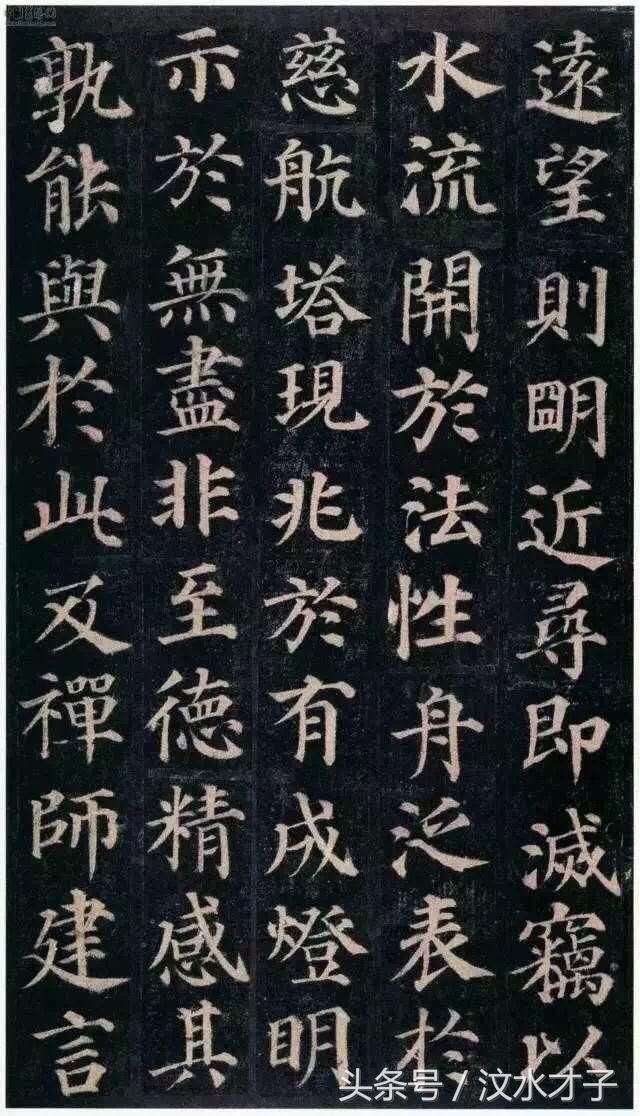 遠望則朙近尋即滅竊以
水流開於法性舟泛表於
慈航塔現兆於有成燈明
示於無盡非至德精感其
孰能與於此及禪師建言
头条号 / 汶水才子